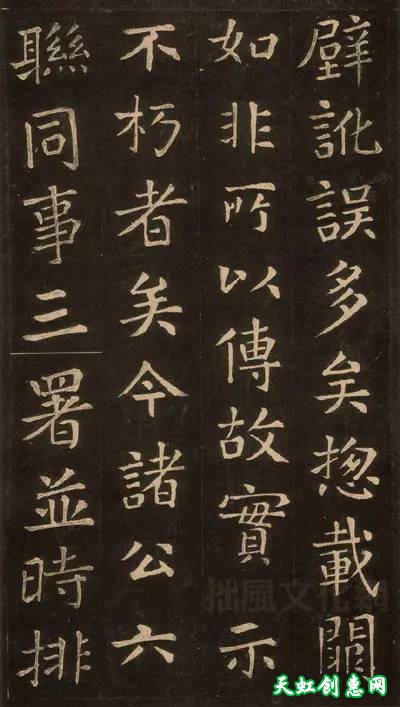 壁訛誤多矣惣載闕
如非所以傳故實示
不朽者矣今諸公六
聯同事三署並時排
拙風文化網
天虹创惠网